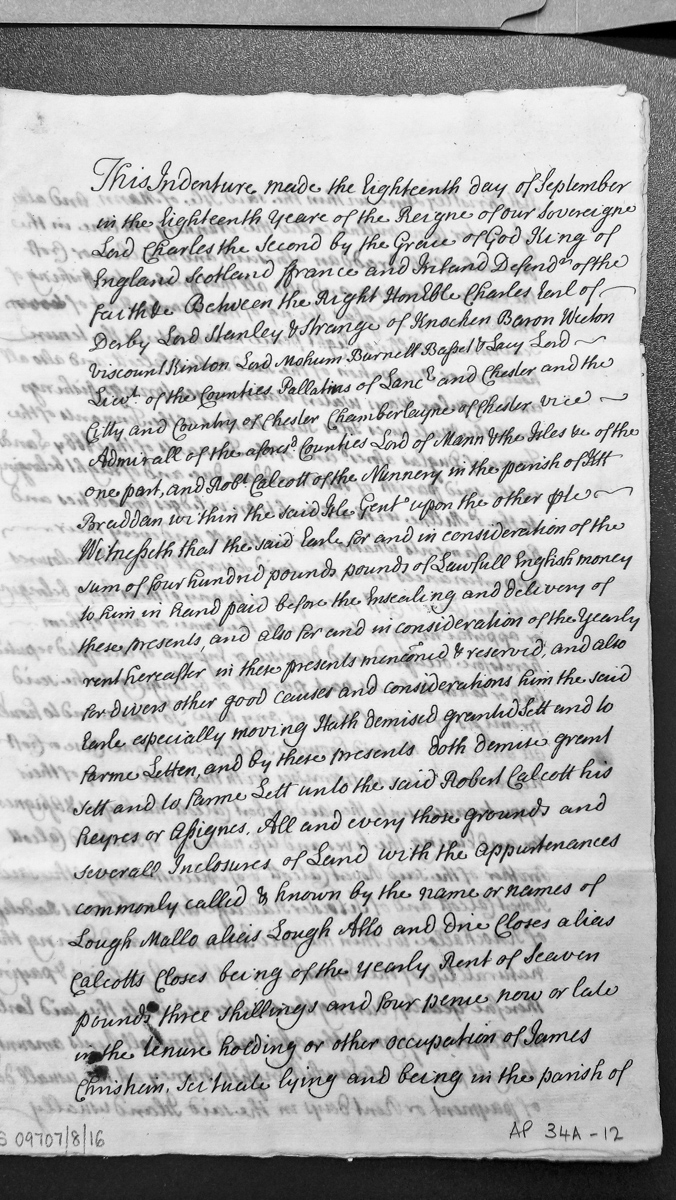 This Indenture made the Eighteenth day of September
in the Eighteenth Yeare of the Reigne of our Sovereigne
Lord Charles the Second by the Grace of God King of
England Scotland ffrance and Irland Defendr of the
faith &c Between the Right Honble Charles Earl of
Derby Lord Stanley & Strange of Knocken Baron Weeton
Viscount Kinton Lord Mohum Burnell Bassel & Lacy Lord
Liewt. of the Counties Pallatins of Lancr and Chester and the
Citty and Country of Chester Chamberlayne of Chester Vice
Admirall of the aforesd Counties Lord of Mann & the Isles &c of the
one part, and Robt Calcott of the Nunnery in the parish of Kk
Braddan within the said Isle Gent upon the other pte
Witnesseth that the said Earle for and in consideration of the
sum of four hundrd pounds pounds of Lawfull English money
to him in hand paid before the Ensealing and delivery of
these presents, and also for and in consideration of the Yearly
rent hereafter in these presents menconed & reserved, and also
for divers other good causes and considerations him the said
Earle especially moving Hath demised granted Sett and to
farme Letten, and by these presents doth demise grant
sett and to farme Lett unto the said Robert Calcott his
heyres or assignes, All and every those grounds and
severall Inclosures of Land with the appurtenances
commonly called & known by the name or names of
Lough Mallo alias Lough Allo and drie Closes alias
Calcotts Closes being of the yearly Rent of Seaven
pounds three shillings and four pence now or late
in the tenure holding or other occupation of James
Chrishein, scituate lying and being in the parish of
09707/8/16
AP 34A-12